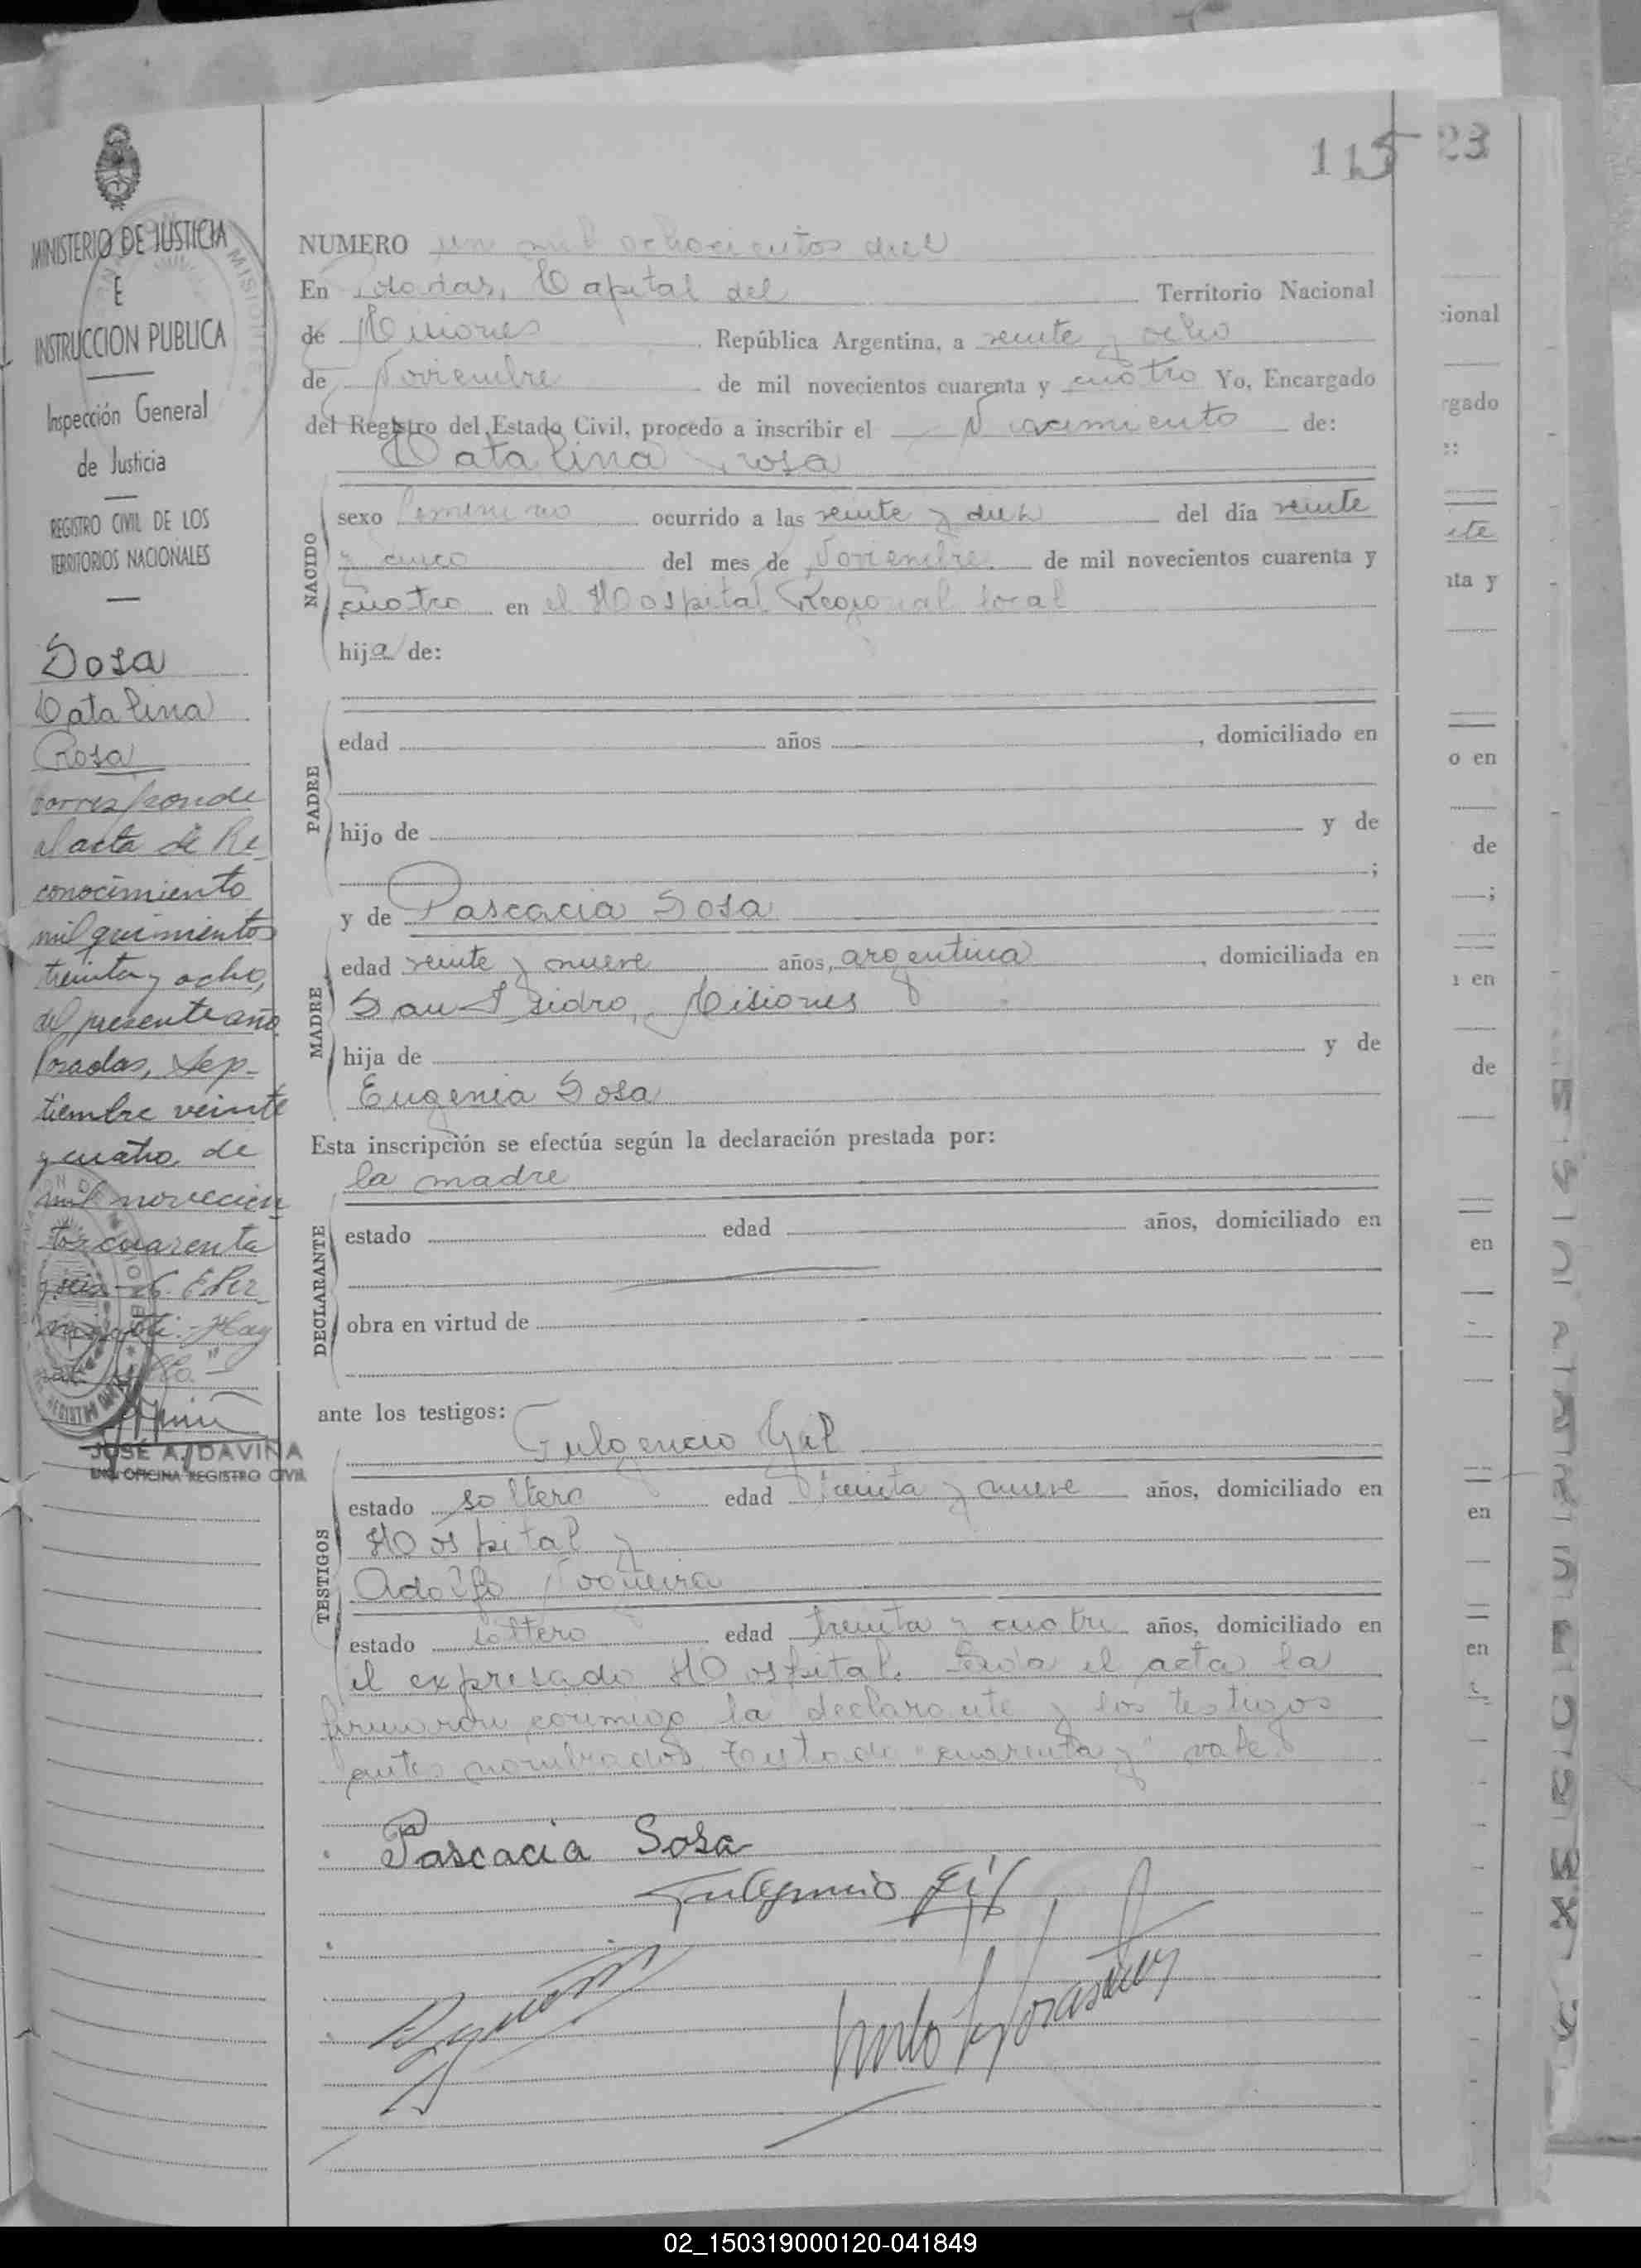 115
23
MINISTERIO DE JUSTICIA
E
INSTRUCCION PUBLICA
Inspección General
de Justicia
REGISTRO CIVIL DE LOS
TERRITORIOS NACIONALES
Sosa
Catalina
Rosa
corresponde
al acta de Re
conocimiento
mil quinientos
treinta y ocho,
del presente año
Posadas, Sep-
tiembre veinte
y cuatro, de
mil novecien
tos cuarenta
y seis
JOSÉ A. DAVIÑA
OFICINA REGISTRO CIVIL
NUMERO un mil ochocientos diez
En Posadas, Capital del Territorio Nacional
de Misiones República Argentina, a veinte y ocho
de Noviembre de mil novecientos cuarenta y cuatro Yo, Encargado
del Registro del Estado Civil, procedo a inscribir el Nacimiento de:
Catalina Rosa
NACIDO
sexo femenino ocurrido a las veinte y diez del día veinte
y cinco del mes de Noviembre de mil novecientos cuarenta y
cuatro en el Hospital Regional local
hija de:
PADRE
edad años , domiciliado en
hijo de y de
;
y de Pascacia Sosa
MADRE
edad veinte y nueve años, argentina , domiciliada en
San Isidro, Misiones
hija de y de
Eugenia Sosa
Esta inscripción se efectúa según la declaración prestada por:
la madre
DECLARANTE
estado edad años, domiciliado en
obra en virtud de
ante los testigos:
Fulgencio Gil
TESTIGOS
estado soltero edad treinta y nueve años, domiciliado en
Hospital y
Adolfo Nogueira
estado soltero edad treinta y cuatro años, domiciliado en
el expresado Hospital. Leida el acta la
firmaron conmigo la declarante y los testigos
antes nombrados. "cuarenta y" vale
Pascacia Sosa
Fulgencio Gil
cional
rgado
::
ete
nta y
o en
de
;
n en
de
en
en
en
02_150319000120-041849